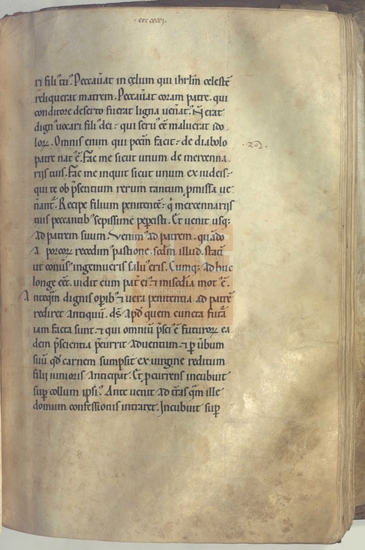 ri fili᷒ tu᷒. Peccauit in celum qui ihrl̄m celestē
reliquerat matrem. Peccauit coram patre. qui
conditore deserto fuerat ligna uenat᷒. Nō erat
dign᷒ uocari fili᷒ dei. qui seru᷒ ēē maluerat ido
lorꝝ. Omnis enim qui peccm̄ facit. de diabolo
patre nat᷒ ē. Fac me sicut unum de mercenna
riis tuis. Fac me inquit sicut unum ex iudeis.
qui te ob p̄sentium rerum tantum ꝓmissa ue
nant᷒. Recipe filium penitentē. q̄ mercennariis
tuis peccantib᷒ sepissime pepercisti. Et uenit usq;
ad patrem suum. Venim᷒ ad patrem. quādo
a porcorꝝ recedim᷒ pastione. scdm̄ illud. Stati
ut conuersus ingemueris saluus eris. Cumq; adhuc
longe eēt. uidit eum pat̄ ei᷒. ⁊ misc̄dia mot᷒ ē.
Anteqm̄ dignis opib᷒ ⁊ uera penitentia ad patrē
rediret antiquū. ds̄. apd̄ quem cuncta futura
iam facta sunt. ⁊ qui omniū p̄sci᷒ ē futurorꝝ. ea
dem p̄scientia p̄currit aduentum. ⁊ ꝑ uerbum
suū qd̄ carnem sumpsit ex uirgine reditum
filii iunioris anticipat. Et p̄currens incubuit
suꝑ collum ipsi᷒. Ante uenit ad terras qm̄ ille
domum confessionis intraret. Incubuit suꝑ